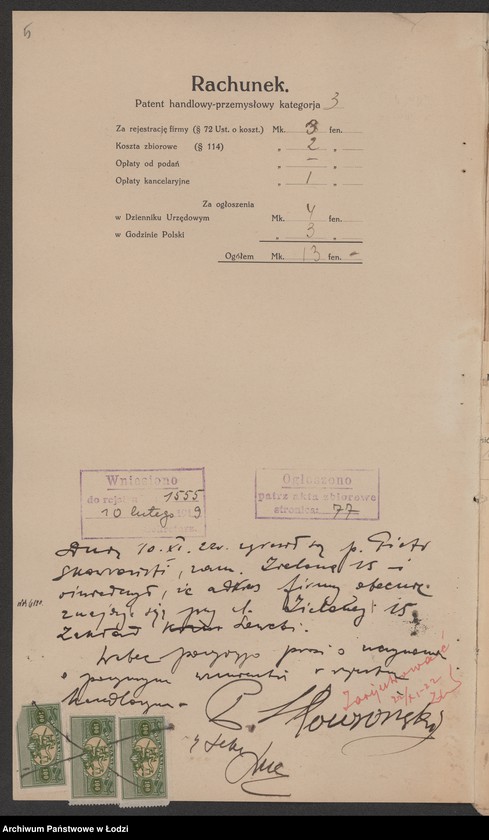 5
Rachunek.
Patent handlowy-przemysłowy kategorja 3
Za rejestrację firmy (§ 72 Ust. o koszt.) Mk. 3 fen.
Koszta zbiorowe (§ 114) „ 2 „
Opłaty od podań „ – „
Opłaty kancelaryjne „ 1 „
Za ogłoszenia
w Dzienniku Urzędowym Mk. 4 fen.
w Godzinie Polski „ 3 „
Ogółem Mk. 13 fen. –
Wniesiono
do rejestru 1555
10 lutego 1919
Ogłoszono
patrz akta zbiorowe
stronica: 77
Dnia 10.XI.22r. p. Piotr
Skowroński, zam. Zielona 15 i
oświadczył, iż adres firmy obecnie
znajduje się przy ul. Zielonej 15
Zakład
Wobec powyższego prosi o uczynienie
o powyższem wzmianki w rejestrze
handlowym
Zarejestrować
P. Skowroński
Archiwum Państwowe w Łodzi